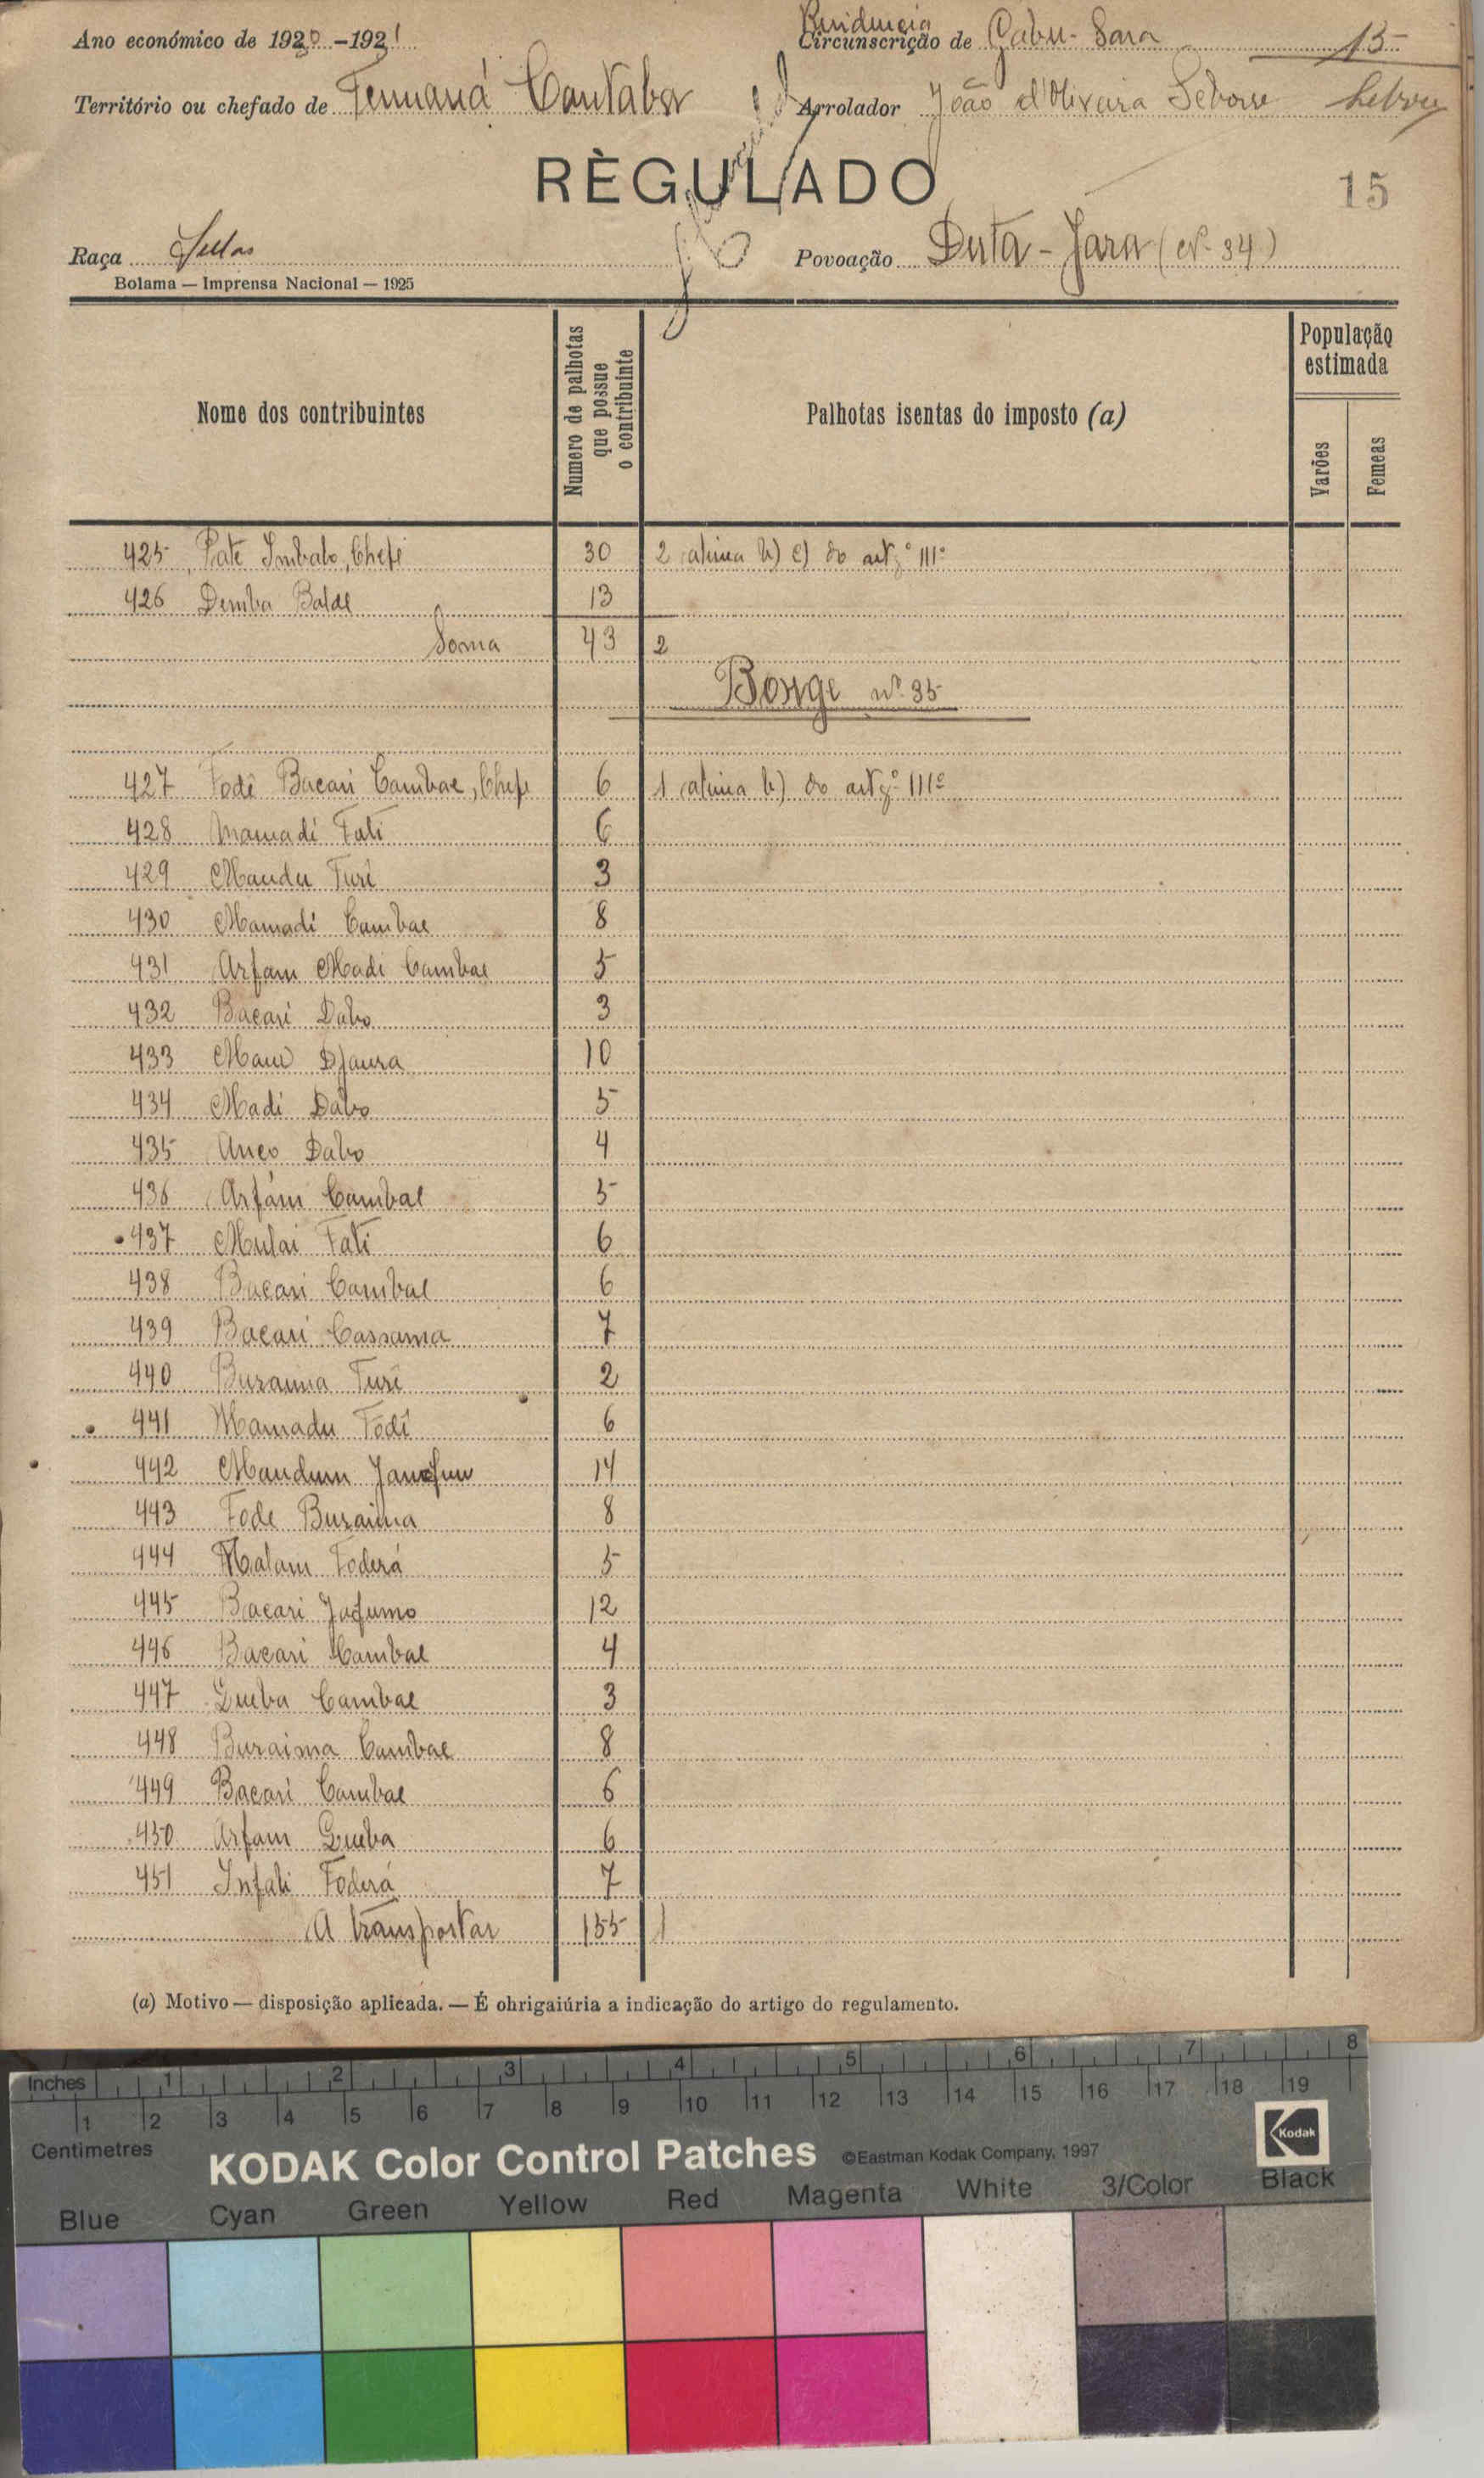 Ano económico de 1930-1931
Residencia
Circunscrição de Gabu-Sara 15
Território ou chefado de Cantabor
Arrolador João d'Oliveira
RÈGULADO
15
Raça Fulas
Povoação Duta-Jara (Nº 34)
Bolama — Imprensa Nacional — 1925
Nome dos contribuintes
Numero de palhotas que possue o contribuinte
Palhotas isentas do imposto (a)
População estimada
Varões
Femeas
425 Paté Imbalo, Chefe 30 2 alinea b) c) do artgº 111º
426 Demba Balde 13
Soma 43 2
Bonge nº 35
427 Fodê Bacari Cambae, Chefe 6 1 alinea b) do artgº 111º
428 Mamadi Fati 6
429 Mandu Turé 3
430 Mamadi Cambae 8
431 Arfam Madi Cambae 5
432 Bacari Dabo 3
433 Djaura 10
434 Madi Dabo 5
435 Dabo 4
436 Arfam Cambae 5
437 Mulai Fati 6
438 Bacari Cambae 6
439 Bacari Cassama 7
440 Buraima Turé 2
441 Mamadu Fodé 6
442 14
443 Fode Buraima 8
444 Malam Foderá 5
445 Bacari 12
446 Bacari Cambae 4
447 Queba Cambae 3
448 Buraima Cambae 8
449 Bacari Cambae 6
450 Arfam Queba 6
451 Infali Foderá 7
A transportar 155 1
(a) Motivo — disposição aplicada. — É ohrigaiúria a indicação do artigo do regulamento.
Inches 1 2 3 4 5 6 7 8
1 2 3 4 5 6 7 8 9 10 11 12 13 14 15 16 17 18 19
Centimetres
KODAK Color Control Patches ©Eastman Kodak Company, 1997 Kodak
Blue Cyan Green Yellow Red Magenta White 3/Color Black